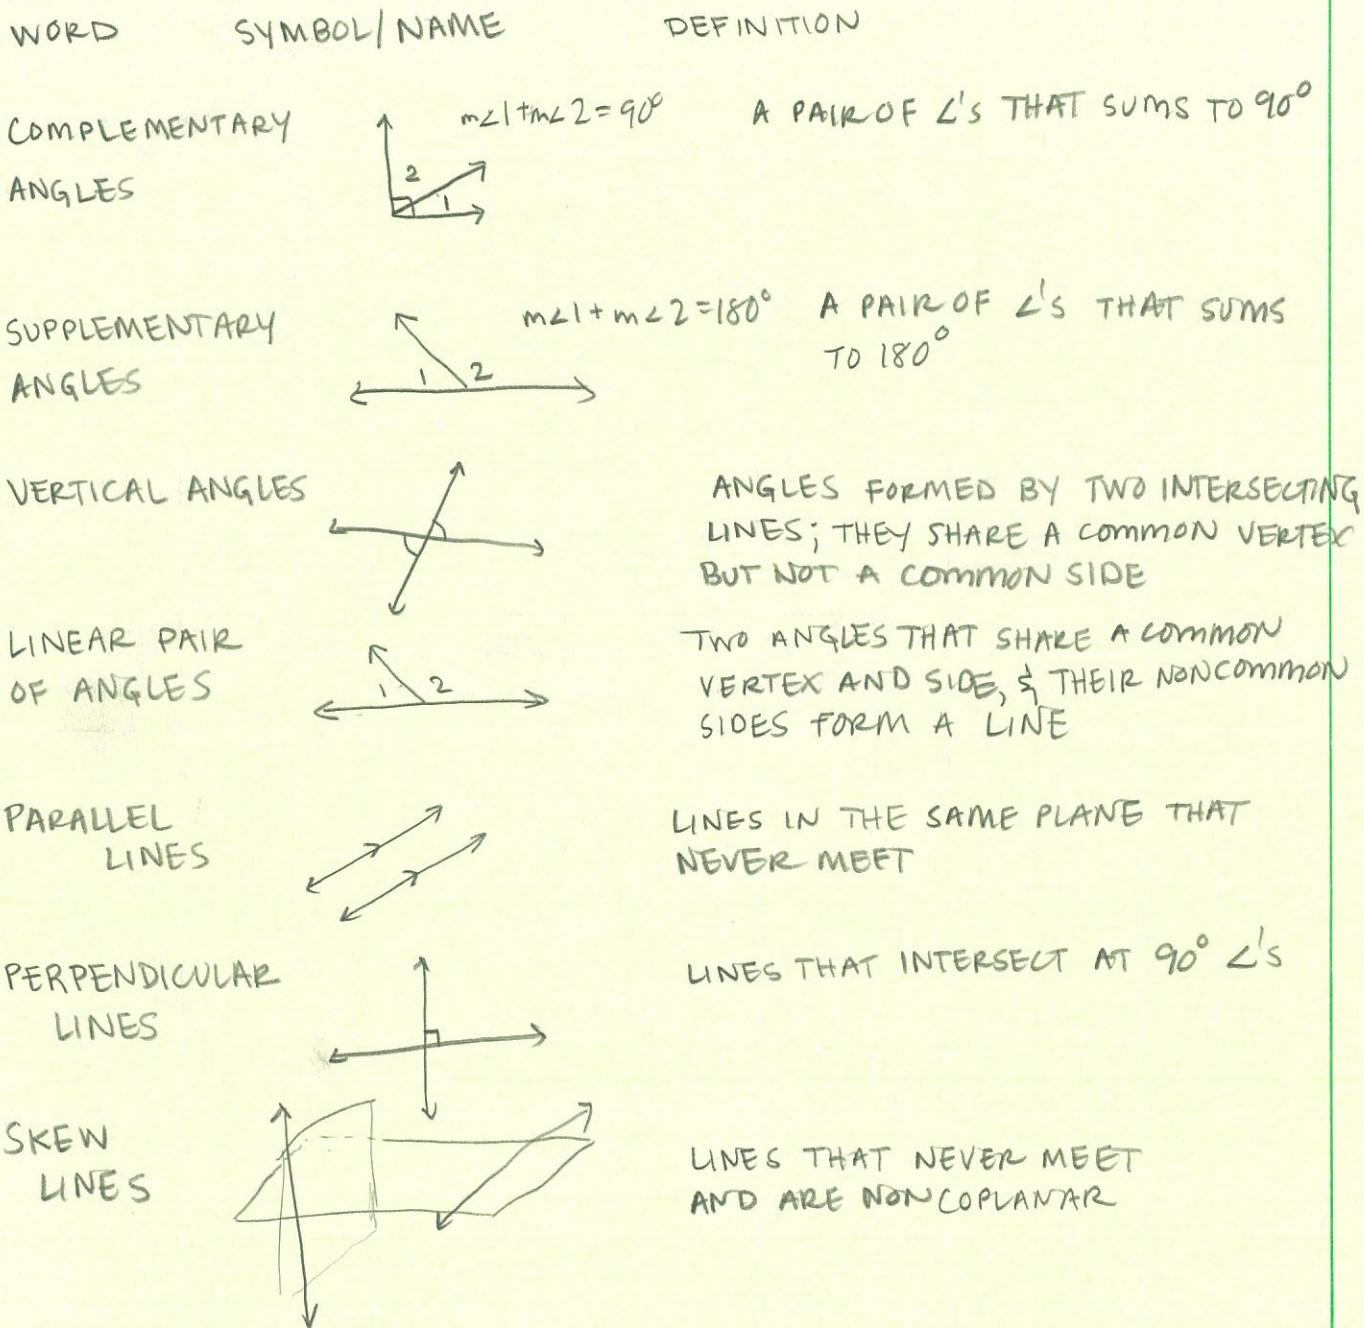 WORD SYMBOL/NAME DEFINITION
COMPLEMENTARY m∠1+m∠2=90° A PAIR OF ∠'S THAT SUMS TO 90°
ANGLES 2 1
SUPPLEMENTARY m∠1+m∠2=180° A PAIR OF ∠'S THAT SUMS
ANGLES 1 2 TO 180°
VERTICAL ANGLES ANGLES FORMED BY TWO INTERSECTING
LINES; THEY SHARE A COMMON VERTEX
BUT NOT A COMMON SIDE
LINEAR PAIR TWO ANGLES THAT SHARE A COMMON
OF ANGLES 1 2 VERTEX AND SIDE, & THEIR NONCOMMON
SIDES FORM A LINE
PARALLEL LINES IN THE SAME PLANE THAT
LINES NEVER MEET
PERPENDICULAR LINES THAT INTERSECT AT 90° ∠'S
LINES
SKEW LINES THAT NEVER MEET
LINES AND ARE NONCOPLANAR